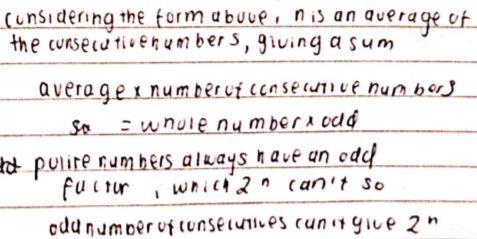 considering the form above, n is an average of
the consecutive numbers, giving a sum
average x number of consecutive numbers
so = whole number x odd
polite numbers always have an odd
factor, which 2^n can't so
odd number of consecutives can't give 2^n